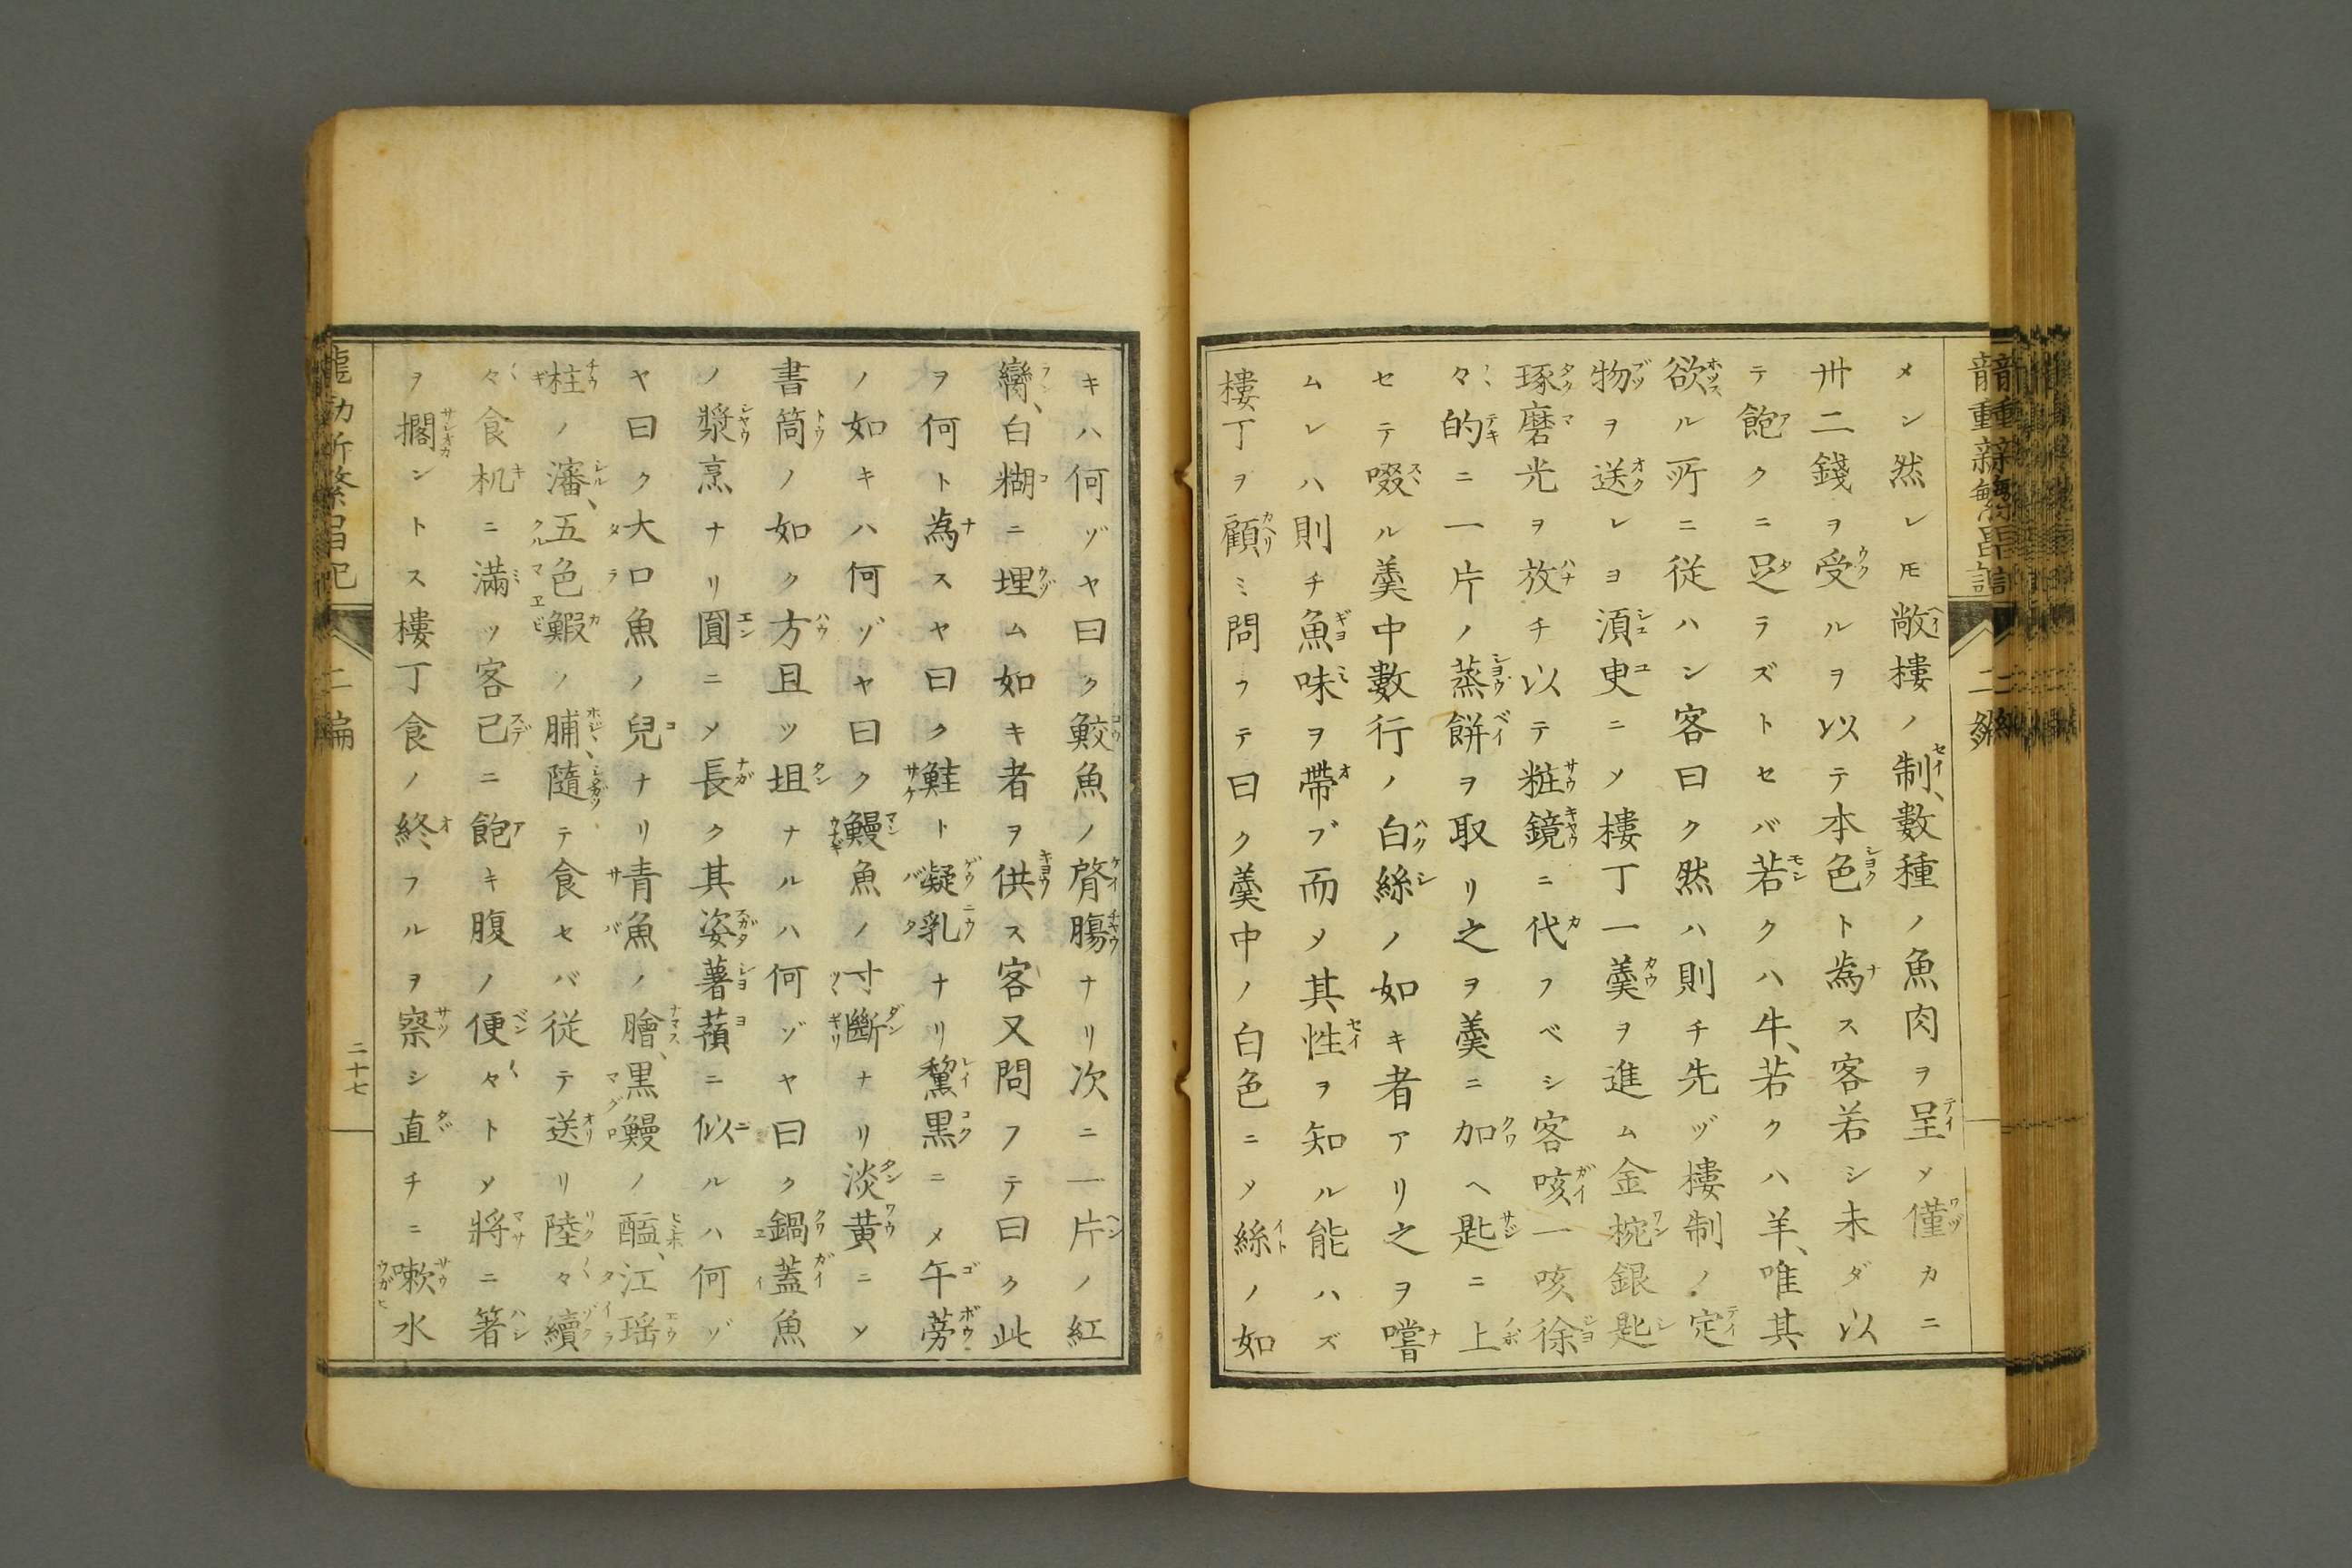 メン然レ𪜈敞樓ノ制、數種ノ魚肉ヲ呈ソ僅カニ
卅二錢ヲ受ルヲ以テ本色ト為ス客若シ未ダ以
テ飽クニ足ラズトセバ若クハ牛、若クハ羊、唯其
欲ル所ニ従ハン客曰ク然ハ則チ先ヅ樓制ノ定
物ヲ送レヨ湏臾ニソ樓丁一羹ヲ進ム金椀銀匙
琢磨光ヲ放チ以テ粧鏡ニ代フベシ客咳一咳、徐
々的ニ一片ノ蒸餅ヲ取リ之ヲ羹ニ加ヘ匙ニ上
セテ啜ル羹中數行ノ白絲ノ如キ者アリ之ヲ嚐
ムレハ則チ魚味ヲ帶ブ而メ其性ヲ知ル能ハズ
樓丁ヲ顧ミ問フテ曰ク羹中ノ白色ニメ絲ノ如
キハ何ゾヤ曰ク鮫魚ノ膂膓ナリ次ニ一片ノ紅
臠、白糊ニ埋ム如キ者ヲ供ス客又問フテ曰ク此
ヲ何ト為スヤ曰ク鮭ト凝乳ナリ黧黒ニメ午蒡
ノ如キハ何ゾヤ曰ク鰻魚ノ寸斷ナリ淡黄ニソ
書筒ノ如ク方且ツ坦ナルハ何ゾヤ曰ク鍋蓋魚
ノ漿烹ナリ圓ニメ長ク其姿薯蕷ニ似ルハ何ゾ
ヤ曰ク大口魚ノ兒ナリ青魚ノ膾、黒鰻ノ醢、江瑶
柱ノ瀋、五色鰕ノ脯、隨テ食セバ従テ送リ陸々續
々食机ニ滿ツ客已ニ飽キ腹ノ便々トソ將ニ箸
ヲ擱ントス樓丁食ノ終フルヲ察シ直チニ嗽水
二編
二十七